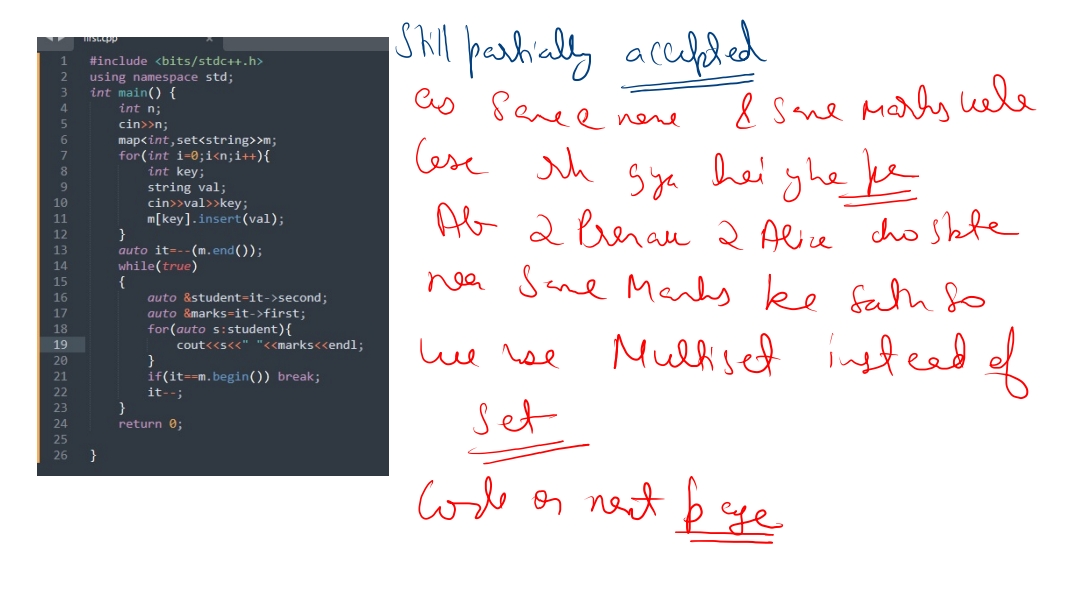 first.cpp x
1 #include <bits/stdc++.h>
2 using namespace std;
3 int main() {
4 int n;
5 cin>>n;
6 map<int,set<string>>m;
7 for(int i=0;i<n;i++){
8 int key;
9 string val;
10 cin>>val>>key;
11 m[key].insert(val);
12 }
13 auto it=--(m.end());
14 while(true)
15 {
16 auto &student=it->second;
17 auto &marks=it->first;
18 for(auto s:student){
19 cout<<s<<" "<<marks<<endl;
20 }
21 if(it==m.begin()) break;
22 it--;
23 }
24 return 0;
25
26 }
Still partially accepted
as same name & same marks wale
case rh gya hai yha pe
Ab 2 2 Alice ho skte
Same Marks ke sath so
we use Multiset instead of
set
Code on next page